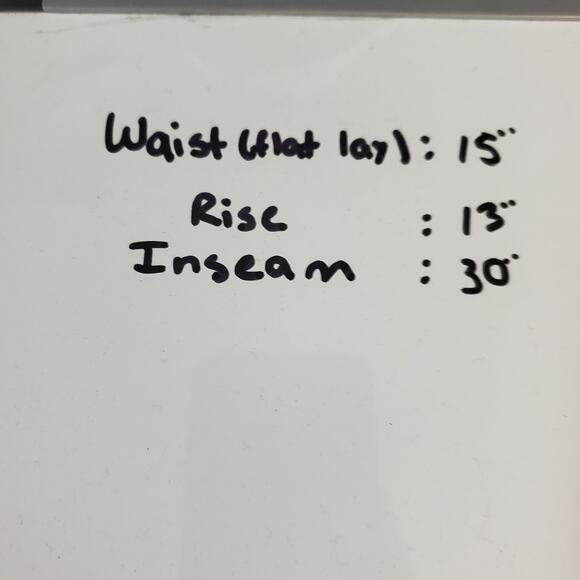 Waist (flat lay) : 15"
Rise : 13"
Inseam : 30"